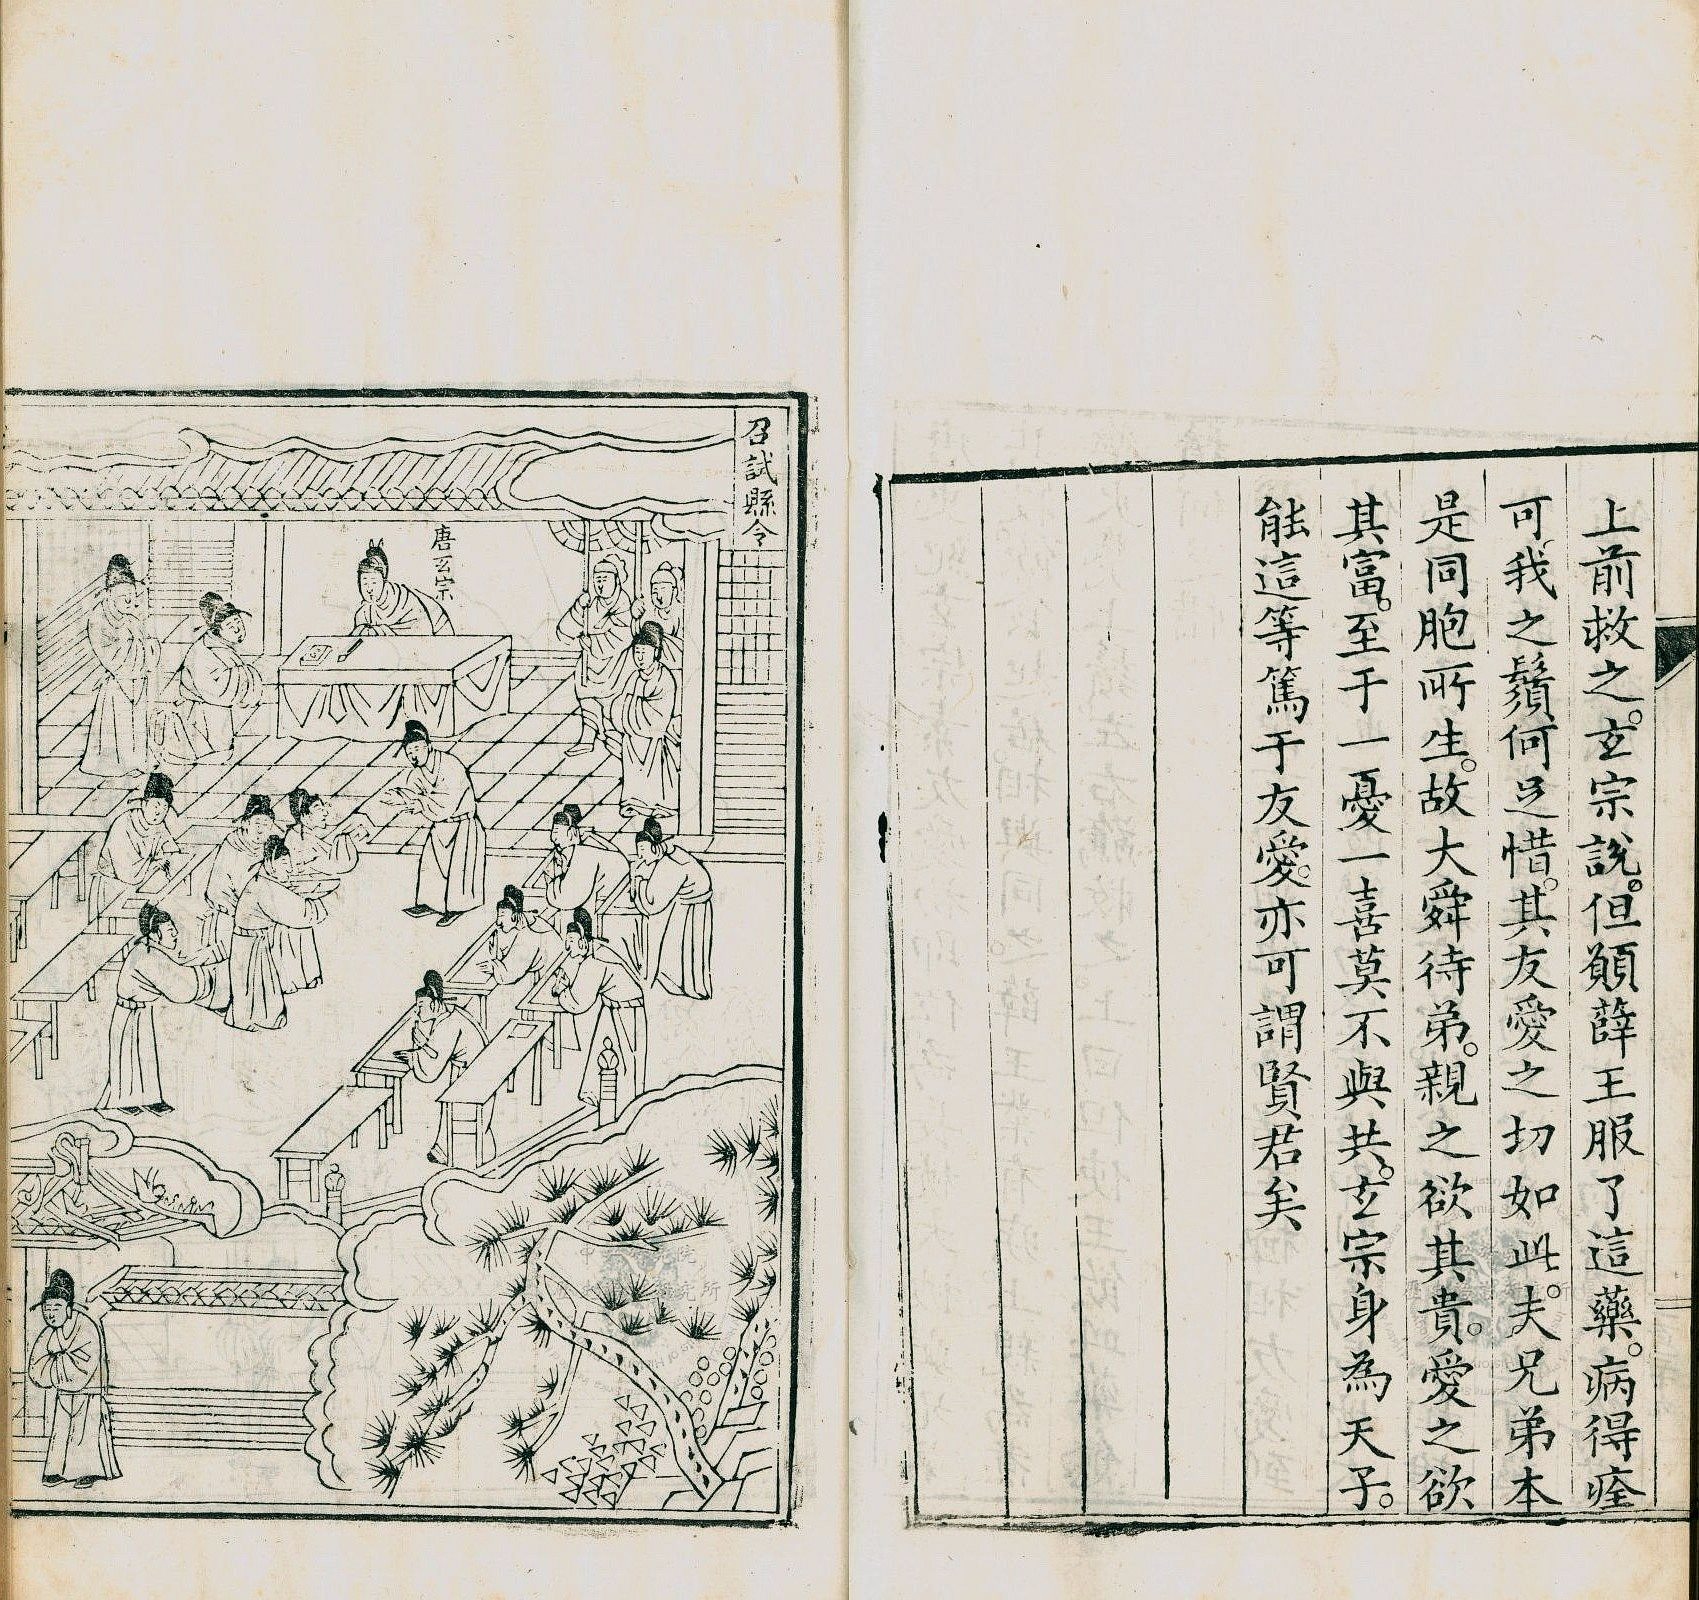 上前救之。玄宗說。但願薛王服了這藥。病得痊
可。我之鬚何足惜。其友愛之切如此。夫兄弟本
是同胞所生。故大舜待弟。親之欲其貴。愛之欲
其富。至于一憂一喜莫不與共。玄宗身為天子。
能這等篤于友愛。亦可謂賢君矣
召試縣令
唐玄宗